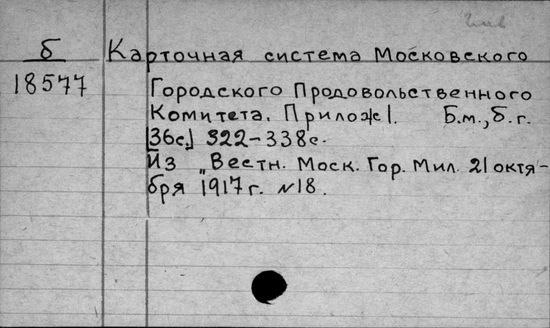 б Карточная система Московского
18577 Городского Продовольственного
Комитета. Прилож 1. Б.м., б.г.
[36с.] 322-338с.
Из „Вестн. Моск. Гор. Мил. 21 октя-
бря 1917г. №18.